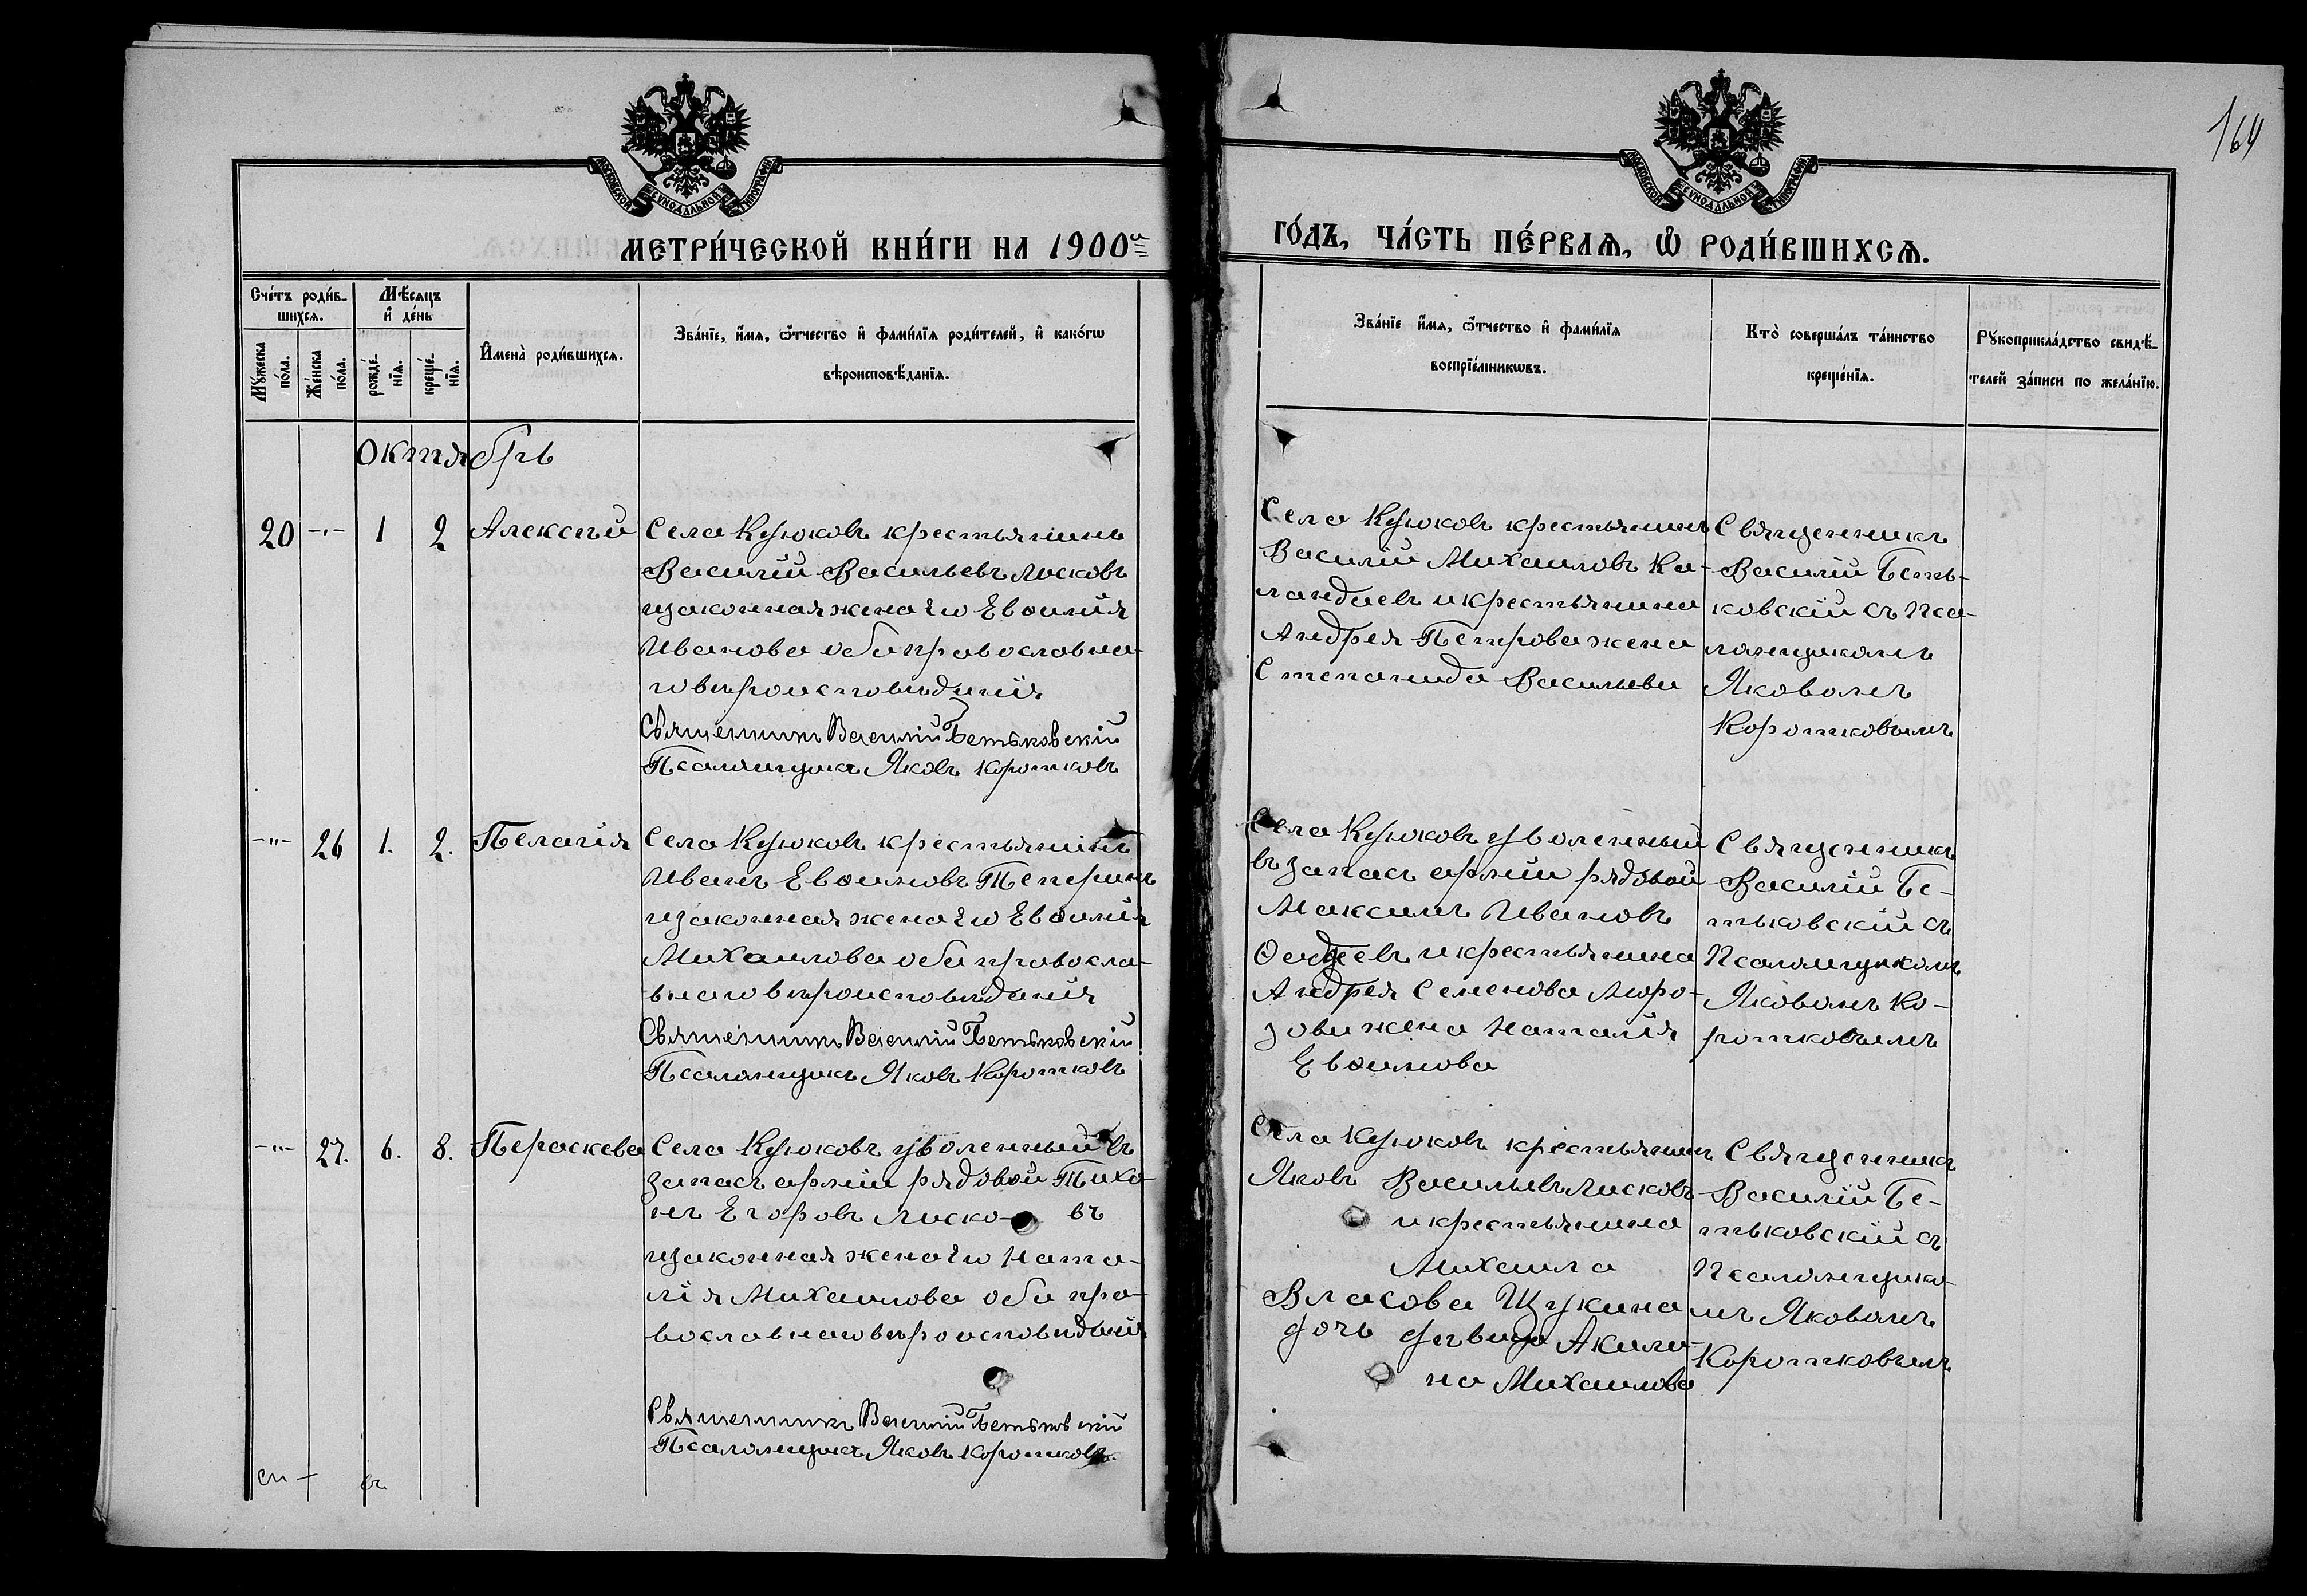 164
МОСКОВСКОЙ СУНОДАЛЬНОЙ ТИПОГРАФІИ
МОСКОВСКОЙ СУНОДАЛЬНОЙ ТИПОГРАФІИ
МЕТРИ́ЧЕСКОЙ КНИ́ГИ НА 1900й
ГО́ДЪ, ЧА́СТЬ ПЕ́РВАѦ, Ѽ РОДИ́ВШИХСѦ.
Сче́тъ роди́в-
шихсѧ.
Мꙋ́жеска
по́ла.
Же́нска
по́ла.
Мѣ́сѧцъ
и҆ де́нь
рожде́-
нїѧ.
креще́-
нїѧ.
И҆мена̀ роди́вшихсѧ.
Зва́нїе, и҆́мѧ, ѻ҆́тчество и҆ фами́лїѧ роди́телей, и҆ како́гѡ
вѣроисповѣ́данїѧ.
Зва́нїе и҆́мѧ, ѻ҆́тчество и҆ фами́лїѧ
воспрїе́мникѡвъ.
Кто̀ соверша́лъ та́инство
креще́нїѧ.
Рꙋкоприкла́дство свидѣ́-
телей за́писи по жела́нїю.
Октябрь
20 -"- 1 2 Алексѣй
Села Крюковъ крестьянинъ
Василій Васильевъ Лисковъ
и законная жена его Евѳимія
Иванова оба православна-
го вѣроисповѣданія
Священникъ Василій Бетьковскій
Псаломщикъ Яковъ Коротковъ
Села Крюковъ крестьянинъ
Василій Михаиловъ Ка-
ландаевъ и крестьянина
Андрея Петрова жена
Степанида Васильева
Священникъ
Василій Беть-
ковскій съ Пса-
ломщикомъ
Яковомъ
Коротковымъ
-"- 26 1. 2. Пелагія
Села Крюковъ крестьянинъ
Иванъ Евѳимовъ Теперинъ
и законная жена его Евѳимія
Михаилова оба правосла-
внаго вѣроисповѣданія
Священникъ Василій Бетьковскій
Псаломщикъ Яковъ Коротковъ
Села Крюковъ уволенный
въ запасъ арміи рядовой
Максимъ Ивановъ
и крестьянина
Андрея Семенова Моро-
зова жена Наталія
Евѳимова
Священникъ
Василій Бе-
тьковскій съ
Псаломщикомъ
Яковомъ Ко-
ротковымъ
-"- 27. 6. 8. Параскева
Села Крюковъ уволенный въ
запасъ арміи рядовой Тихо-
нъ Егоровъ Лиско- въ
и законная жена его Ната-
лія Михаилова оба пра-
вославнаго вѣроисповѣданія
Священникъ Василій Бетьковскій
Псаломщикъ Яковъ Коротковъ
Села Крюковъ крестьянинъ
Яковъ Васильевъ Лисковъ
и крестьянина
Михаила
Власова Щукина
дочь дѣвица Акили-
на Михаилова
Священникъ
Василій Бе-
тьковскій съ
Псаломщико-
мъ Яковомъ
Коротковымъ